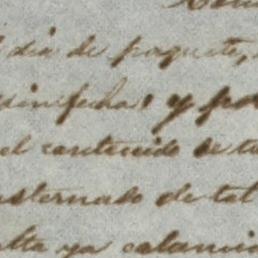 dia de paquete,
sin fecha, y po
el contenido de tu
nsternado de tal
lta ya calami